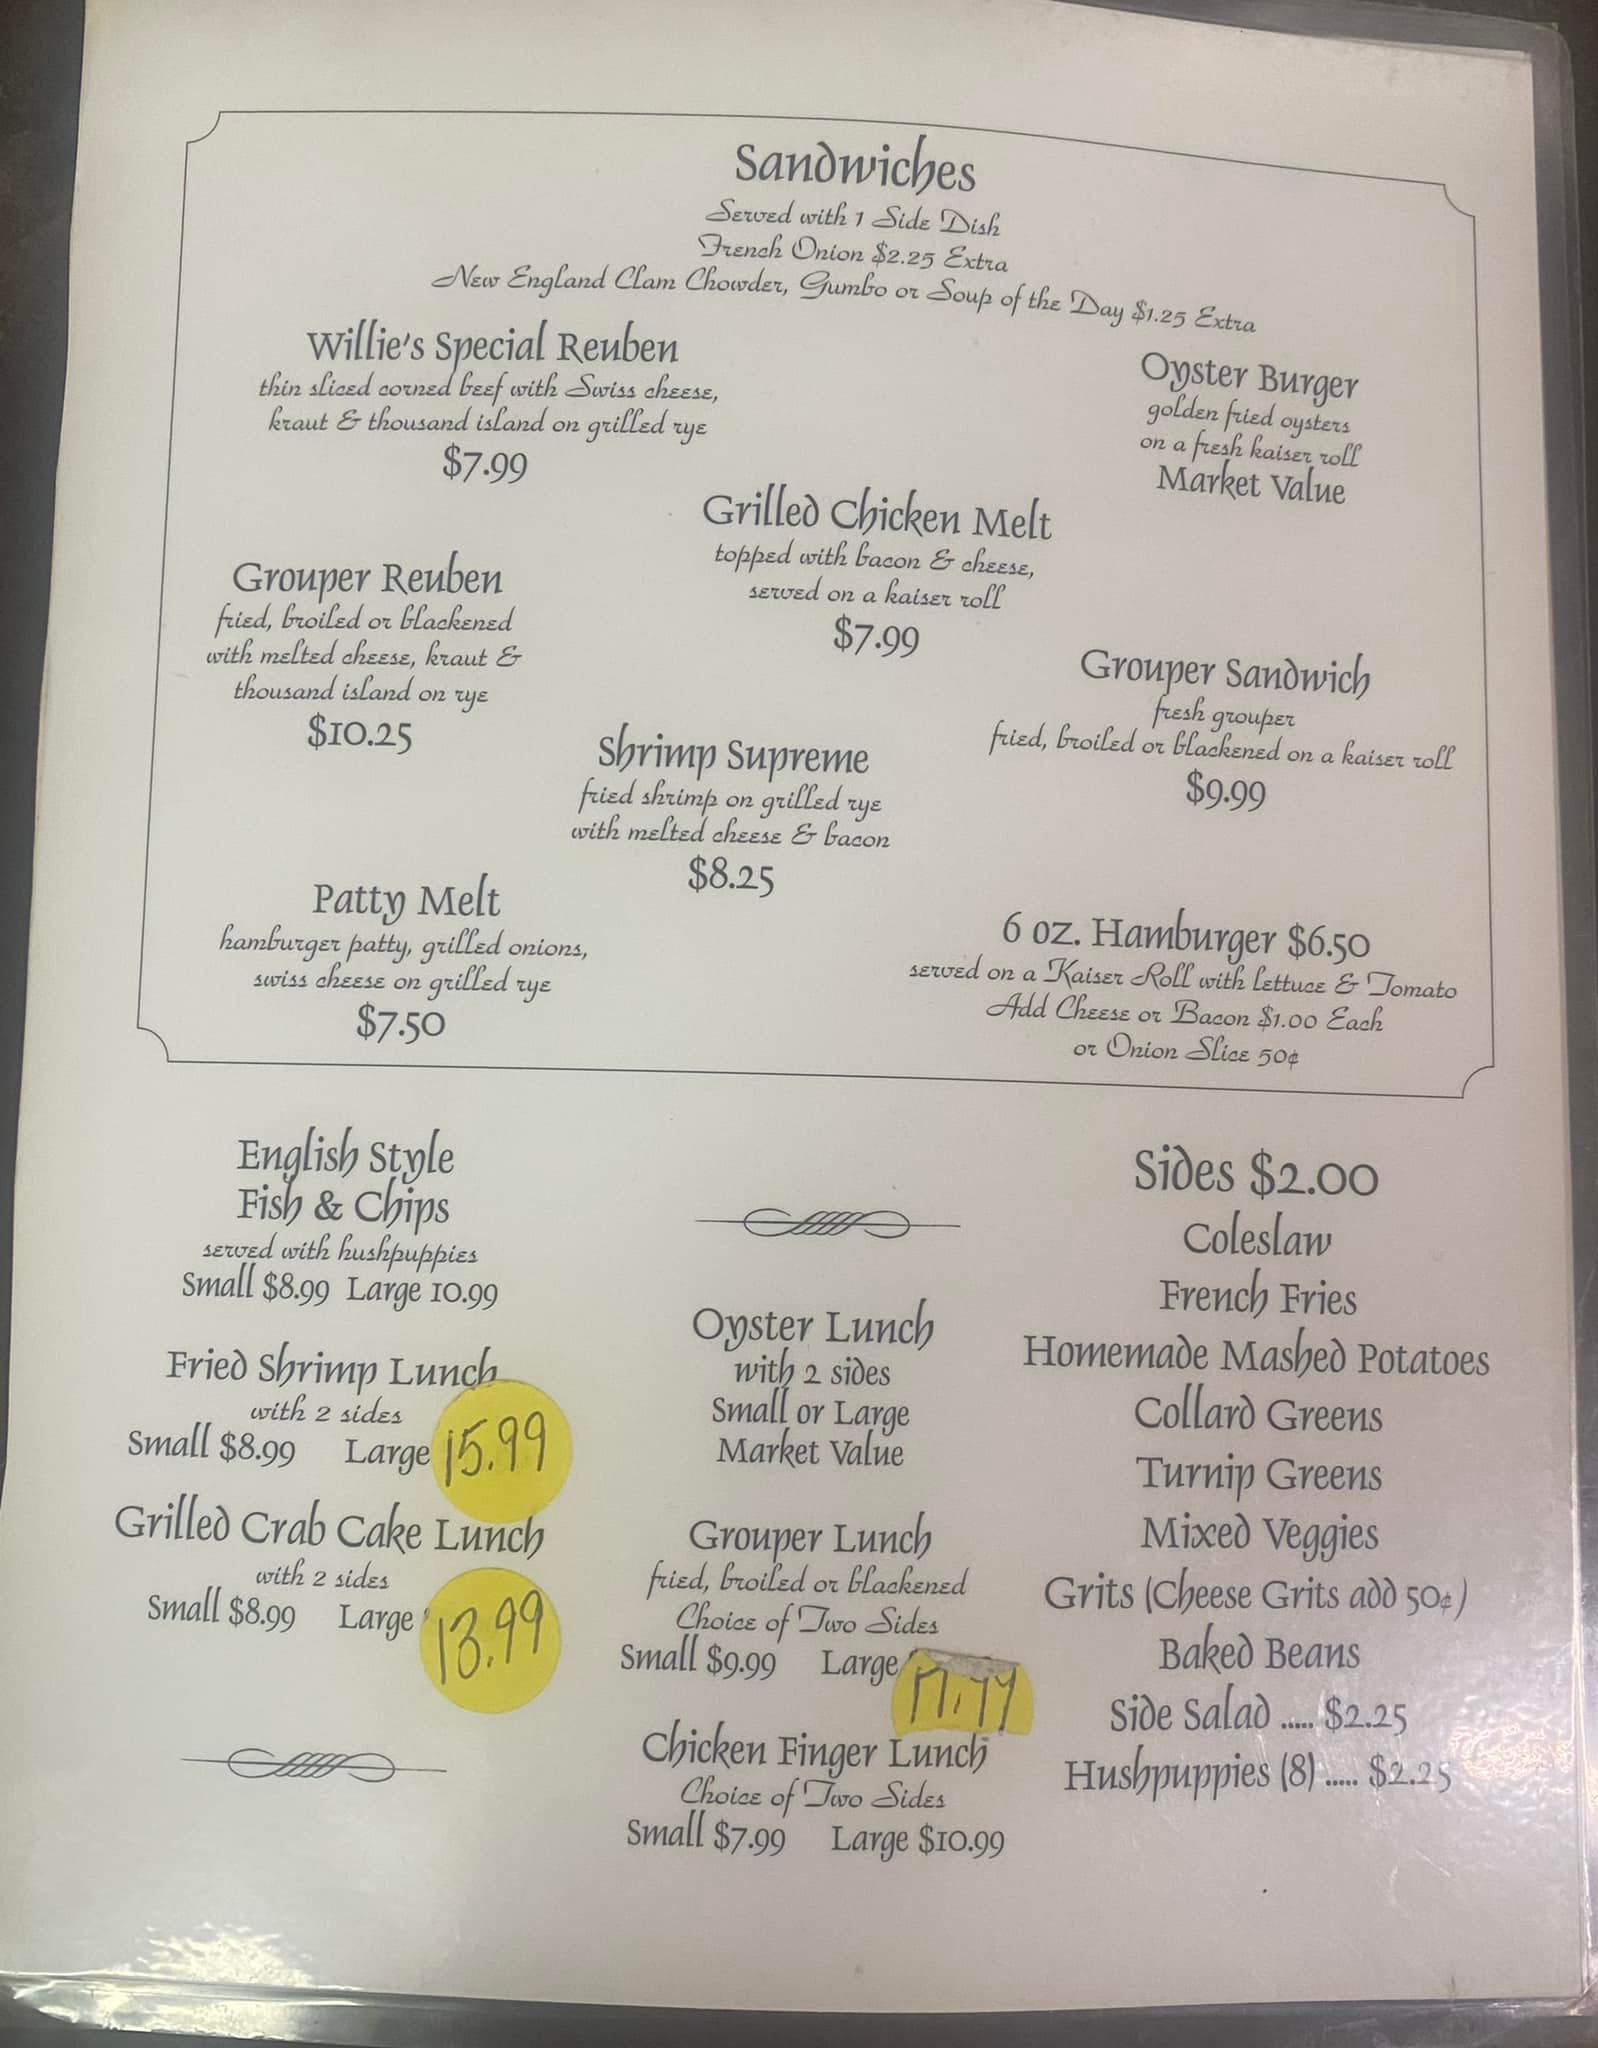 Sandwiches
Served with 1 Side Dish
French Onion $2.25 Extra
New England Clam Chowder, Gumbo or Soup of the Day $1.25 Extra
Willie's Special Reuben
thin sliced corned beef with Swiss cheese,
kraut & thousand island on grilled rye
$7.99
Oyster Burger
golden fried oysters
on a fresh kaiser roll
Market Value
Grilled Chicken Melt
topped with bacon & cheese,
served on a kaiser roll
$7.99
Grouper Reuben
fried, broiled or blackened
with melted cheese, kraut &
thousand island on rye
$10.25
Grouper Sandwich
fresh grouper
fried, broiled or blackened on a kaiser roll
$9.99
Shrimp Supreme
fried shrimp on grilled rye
with melted cheese & bacon
$8.25
Patty Melt
hamburger patty, grilled onions,
swiss cheese on grilled rye
$7.50
6 oz. Hamburger $6.50
served on a Kaiser Roll with lettuce & Tomato
Add Cheese or Bacon $1.00 Each
or Onion Slice 50¢
English Style
Fish & Chips
served with hushpuppies
Small $8.99 Large 10.99
Fried Shrimp Lunch
with 2 sides
Small $8.99 Large 15.99
Grilled Crab Cake Lunch
with 2 sides
Small $8.99 Large 13.99
Oyster Lunch
with 2 sides
Small or Large
Market Value
Grouper Lunch
fried, broiled or blackened
Choice of Two Sides
Small $9.99 Large
Chicken Finger Lunch
Choice of Two Sides
Small $7.99 Large $10.99
Sides $2.00
Coleslaw
French Fries
Homemade Mashed Potatoes
Collard Greens
Turnip Greens
Mixed Veggies
Grits (Cheese Grits add 50¢)
Baked Beans
Side Salad ..... $2.25
Hushpuppies (8) ..... $2.25